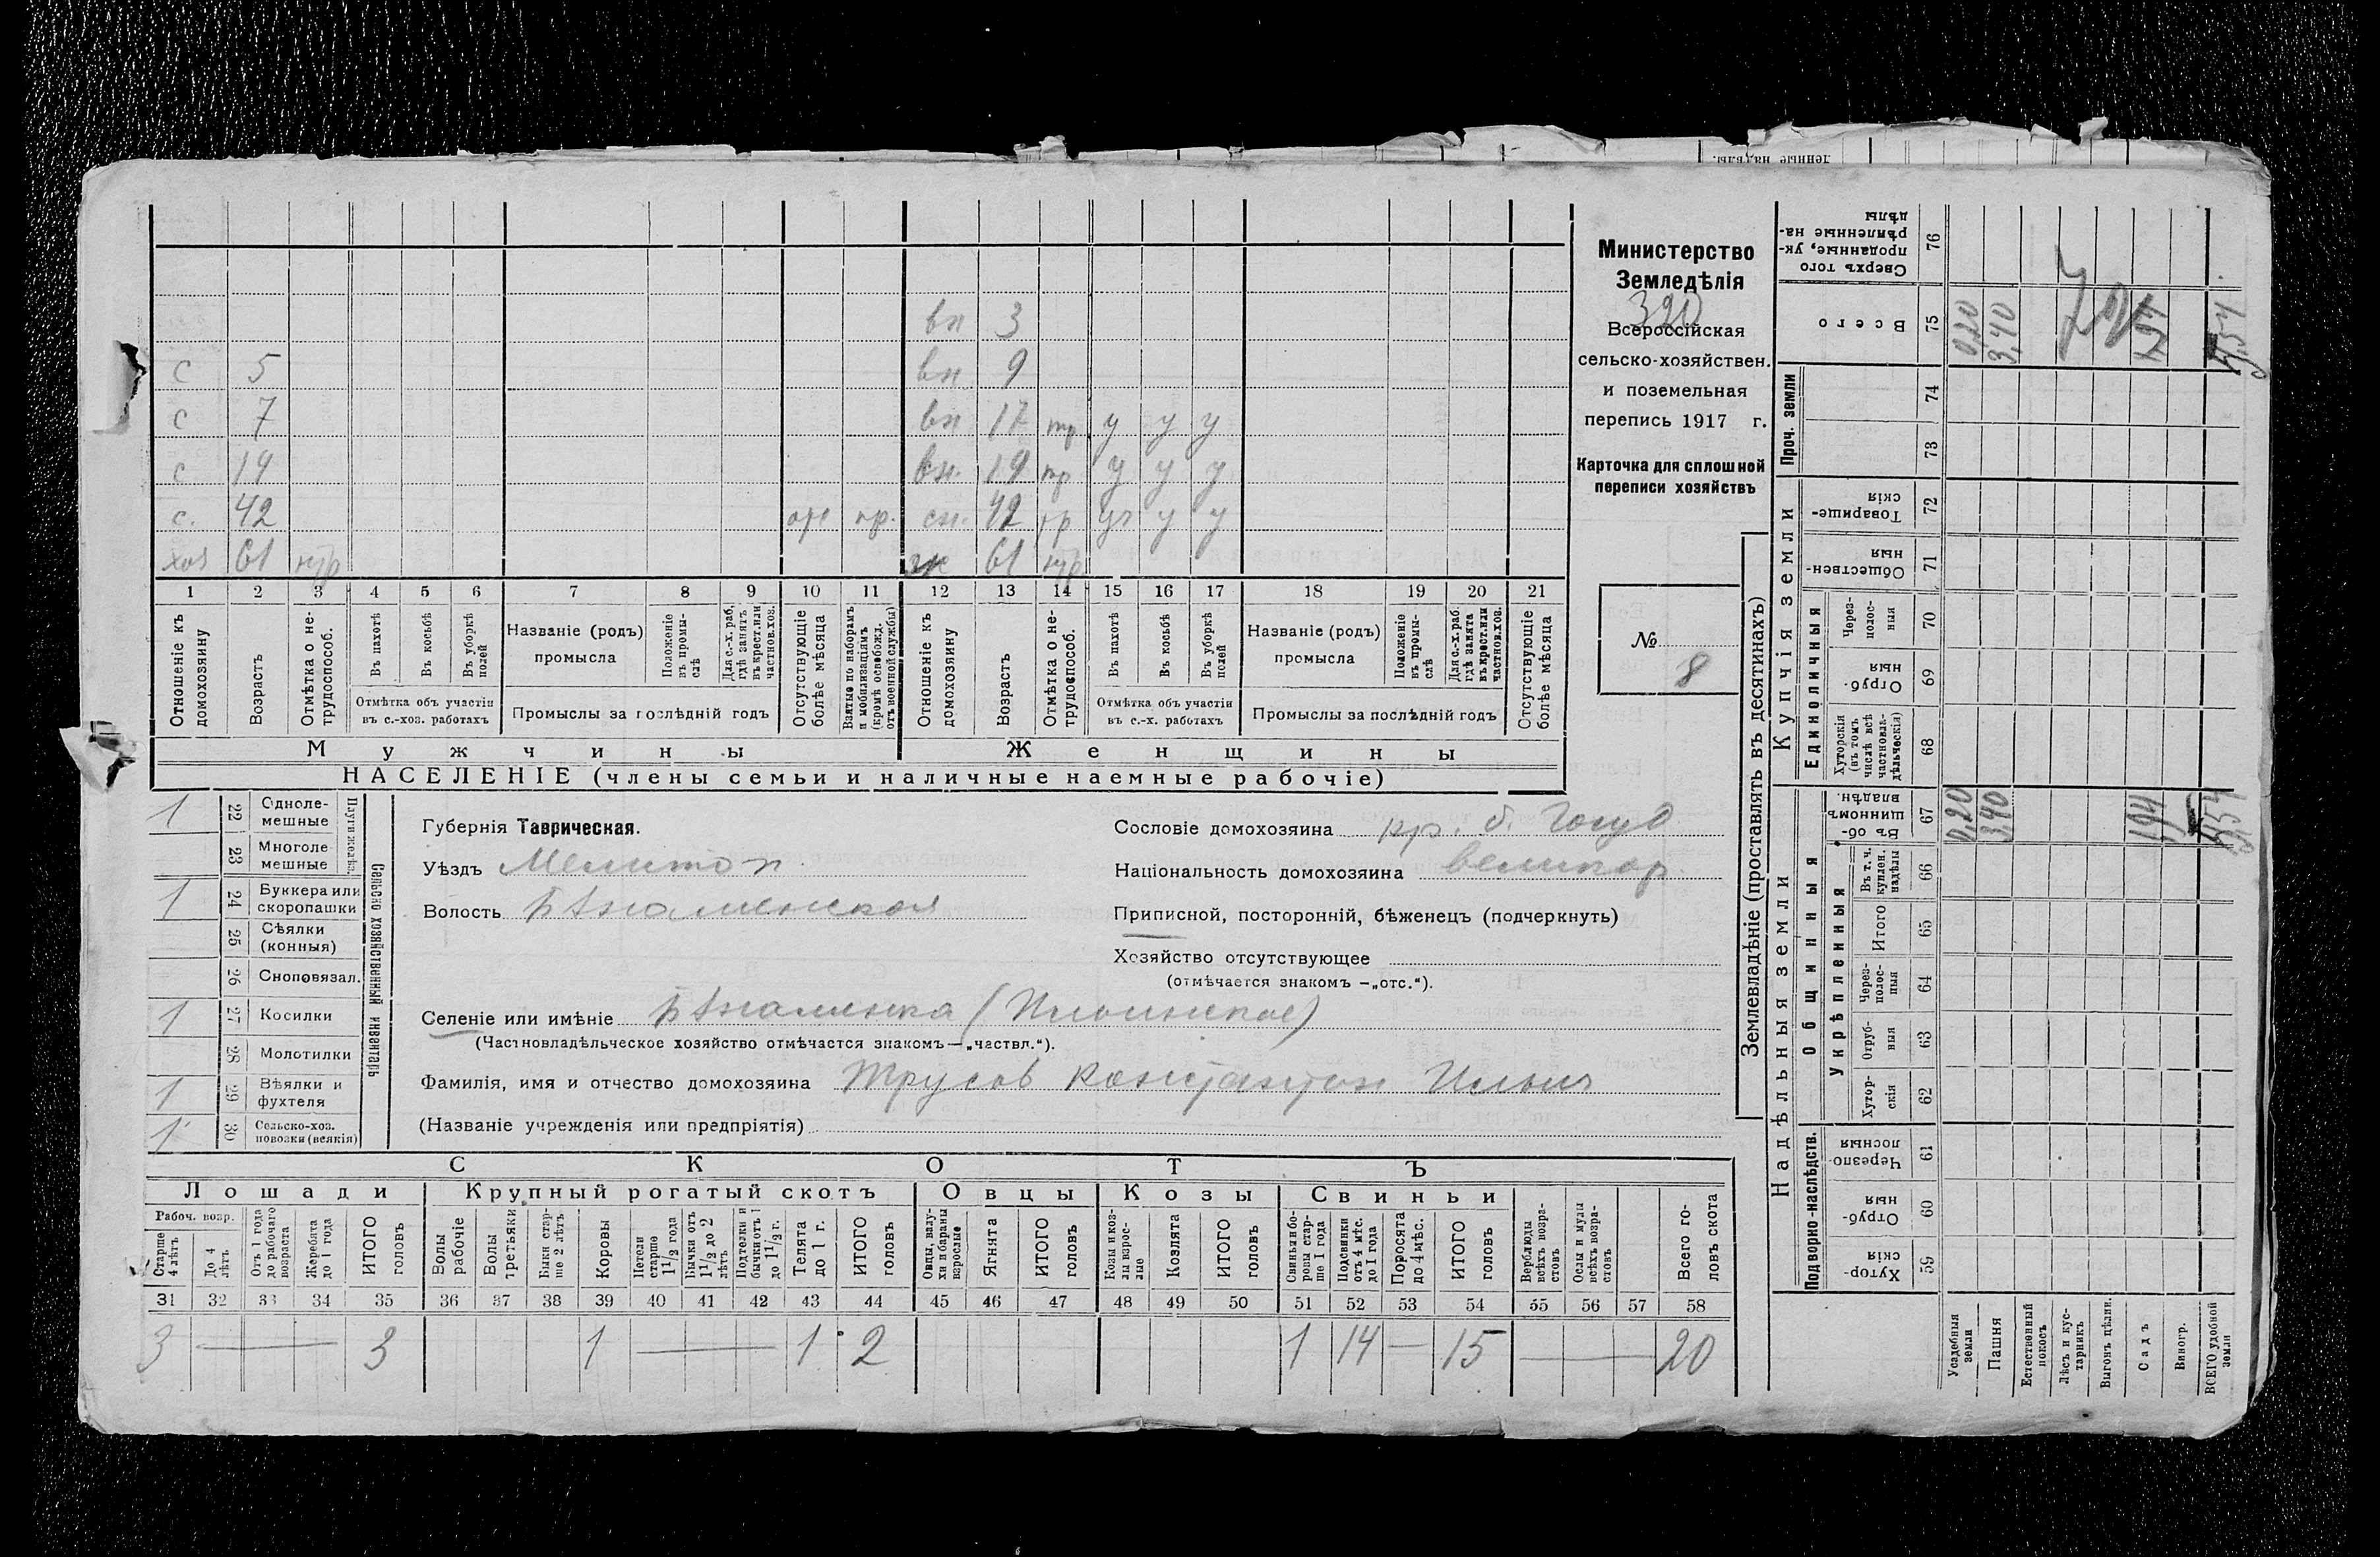 вн 3
с 5 вн 9
с 7 вн 17 тр у у у
с 14 вн. 19 тр у у у
с. 42 пр. сн. 42 у у
хоз 61 нтр 61 нтр
1 2 3 4 5 6 7 8 9 10 11 12 13 14 15 16 17 18 19 20 21
Отношеніе къ домохозяину
Возрастъ
Отмѣтка о не-трудоспособ.
Въ пахотѣ
Въ косьбѣ
Въ уборкѣ полей
Отмѣтка объ участіи
въ с.-хоз. работахъ
Названіе (родъ)
промысла
Положеніе въ промы-слѣ
Для с.-х. раб. гдѣ занятъ въ крест. или частнов. хоз.
Промыслы за послѣдній годъ
Отсутствующіе болѣе мѣсяца
Взятые по наборамъ и мобилизаціямъ (кромѣ освобожд. отъ военной службы)
Отношеніе къ домохозяину
Возрастъ
Отмѣтка о не-трудоспособ.
Въ пахотѣ
Въ косьбѣ
Въ уборкѣ полей
Отмѣтка объ участіи
въ с.-х. работахъ
Названіе (родъ)
промысла
Положеніе въ промы-слѣ
Для с.-х. раб. гдѣ занята въ крест. или частнов. хоз.
Промыслы за послѣдній годъ
Отсутствующіе болѣе мѣсяца
Мужчины Женщины
НАСЕЛЕНІЕ (члены семьи и наличные наемные рабочіе)
Министерство
Земледѣлія
320
Всероссійская
сельско-хозяйствен.
и поземельная
перепись 1917 г.
Карточка для сплошной
переписи хозяйствъ
№
8
Сельско хозяйственный инвентарь
Плуги желѣз.
1 22 Одноле-мешные
23 Многоле мешные
1 24 Буккера или скоропашки
25 Сѣялки (конныя)
26 Сноповязал.
1 27 Косилки
28 Молотилки
1 29 Вѣялки и фухтеля
1 30 Сельско-хоз. повозки (всякія)
Губернія Таврическая.
Уѣздъ Мелитоп
Волость Б Знаменская
Сословіе домохозяина кр. б. Госуд
Національность домохозяина великор.
Приписной, посторонній, бѣженецъ (подчеркнуть)
Хозяйство отсутствующее
(отмѣчается знакомъ —„отс.“).
Селеніе или имѣніе Б Знаменка (Ильинское)
(Частновладѣльческое хозяйство отмѣчается знакомъ—„частвл.“).
Фамилія, имя и отчество домохозяина Трусов Константин Ильич
(Названіе учрежденія или предпріятія)
СКОТЪ
Лошади Крупный рогатый скотъ Овцы Козы Свиньи
Рабоч. возр.
Старше 4 лѣтъ
До 4 лѣтъ
Отъ 1 года до рабочаго возраста
Жеребята до 1 года
ИТОГО головъ
Волы рабочіе
Волы третьяки
Быки стар-ше 2 лѣтъ
Коровы
Нетели старше 1½ года
Бычки отъ 1½ до 2 лѣтъ
Подтелки и бычки отъ 1 до 1½ г.
Телята до 1 г.
ИТОГО головъ
Овцы, валу-хи и бараны взрослые
Ягнята
ИТОГО головъ
Козы и коз-лы взрос-лые
Козлята
ИТОГО головъ
Свиньи и бо-ровы стар-ше 1 года
Подсвинки отъ 4 мѣс. до 1 года
Поросята до 4 мѣс.
ИТОГО головъ
Верблюды всѣхъ возра-стовъ
Ослы и мулы всѣхъ возра-стовъ
Всего го-ловъ скота
31 32 33 34 35 36 37 38 39 40 41 42 43 44 45 46 47 48 49 50 51 52 53 54 55 56 57 58
3 — 3 1 — 1 2 1 14 — 15 — 20
Землевладѣніе (проставлять въ десятинахъ)
Надѣльныя земли
Купчія земли
Проч. земли
Подворно-наслѣдств.
Общинныя
Укрѣпленныя
Единоличныя
Сверхъ того проданные, ук-рѣпленные на-дѣлы 76
Всего 75 0,20 3,40 1,94 5,54
74
73
Товарище-скія 72
Обществен-ныя 71
Через-полос-ныя 70
Отруб-ныя 69
Хуторскія (въ томъ числѣ всѣ частновла-дѣльческія) 68
Въ об-щинномъ владѣн. 67 0,20 3,40 1,94 5,54
Въ т. ч. куплен. надѣлы 66
Итого 65
Через-полос-ныя 64
Отруб-ныя 63
Хутор-скія 62
Черезпо-лосныя 61
Отруб-ныя 60
Хутор-скія 59
Усадебныя земли
Пашня
Естественный покосъ
Лѣсъ и кус-тарникъ
Выгонъ цѣлин.
Садъ
Виногр.
ВСЕГО удобной земли
ленные надѣлы.